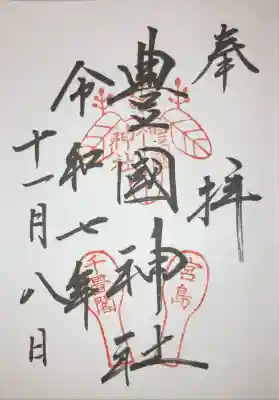 奉拝
豊國神社
令和七年
十一月八日
宮島
千畳閣